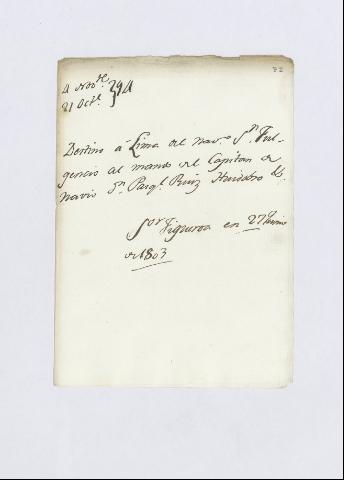 4 Nov.re
21 Oct.e } 94
Destino a Lima del nav.o S.n Ful-
gencio al mando del Capitan de
navio D.n Pasq.l Ruiz Huidobro &.
S.or Figueroa en 27 Junio
de 1803